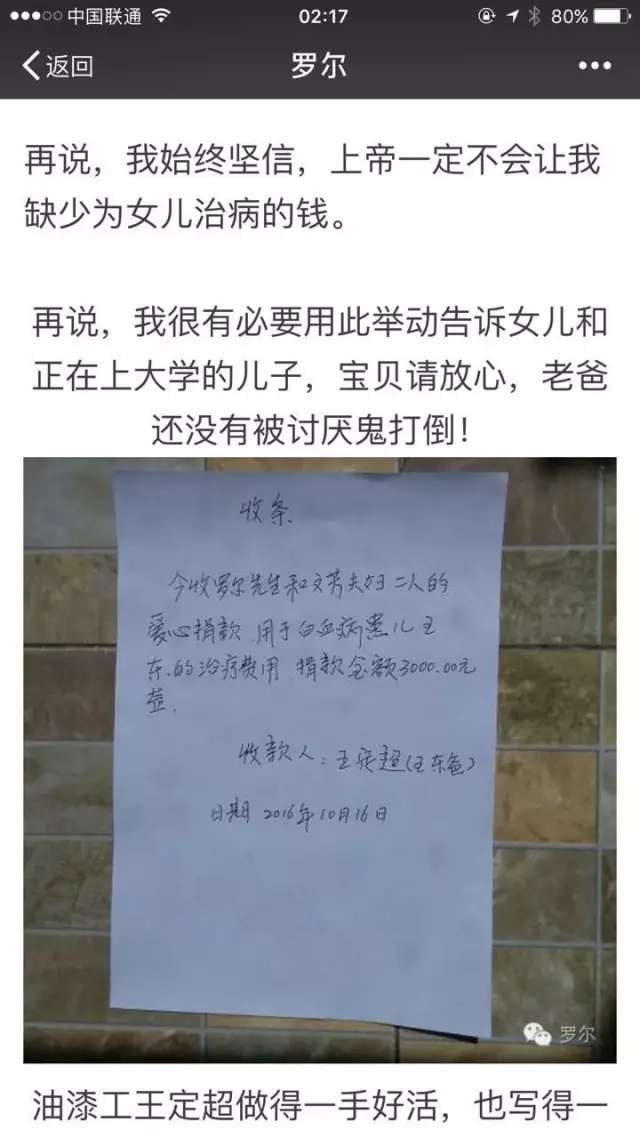 中国联通
02:17
80%
返回
罗尔
再说，我始终坚信，上帝一定不会让我
缺少为女儿治病的钱。
再说，我很有必要用此举动告诉女儿和
正在上大学的儿子，宝贝请放心，老爸
还没有被讨厌鬼打倒！
收条
今收罗尔先生和文芳夫妇二人的
爱心捐款，用于白血病患儿王
东的治疗费用，捐款金额3000.00元
整.
收款人：王定超(王东爸)
日期 2016年10月16日
罗尔
油漆工王定超做得一手好活，也写得一